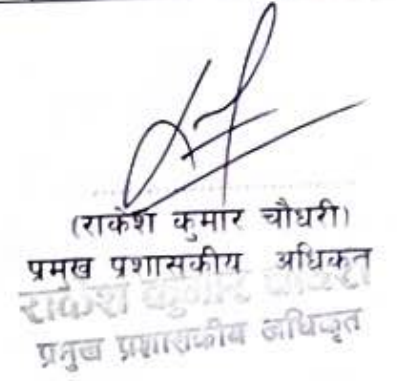 (राकेश कुमार चौधरी)
प्रमुख प्रशासकीय अधिकृत
राकेश कुमार चौधरी
प्रमुख प्रशासकीय अधिकृत